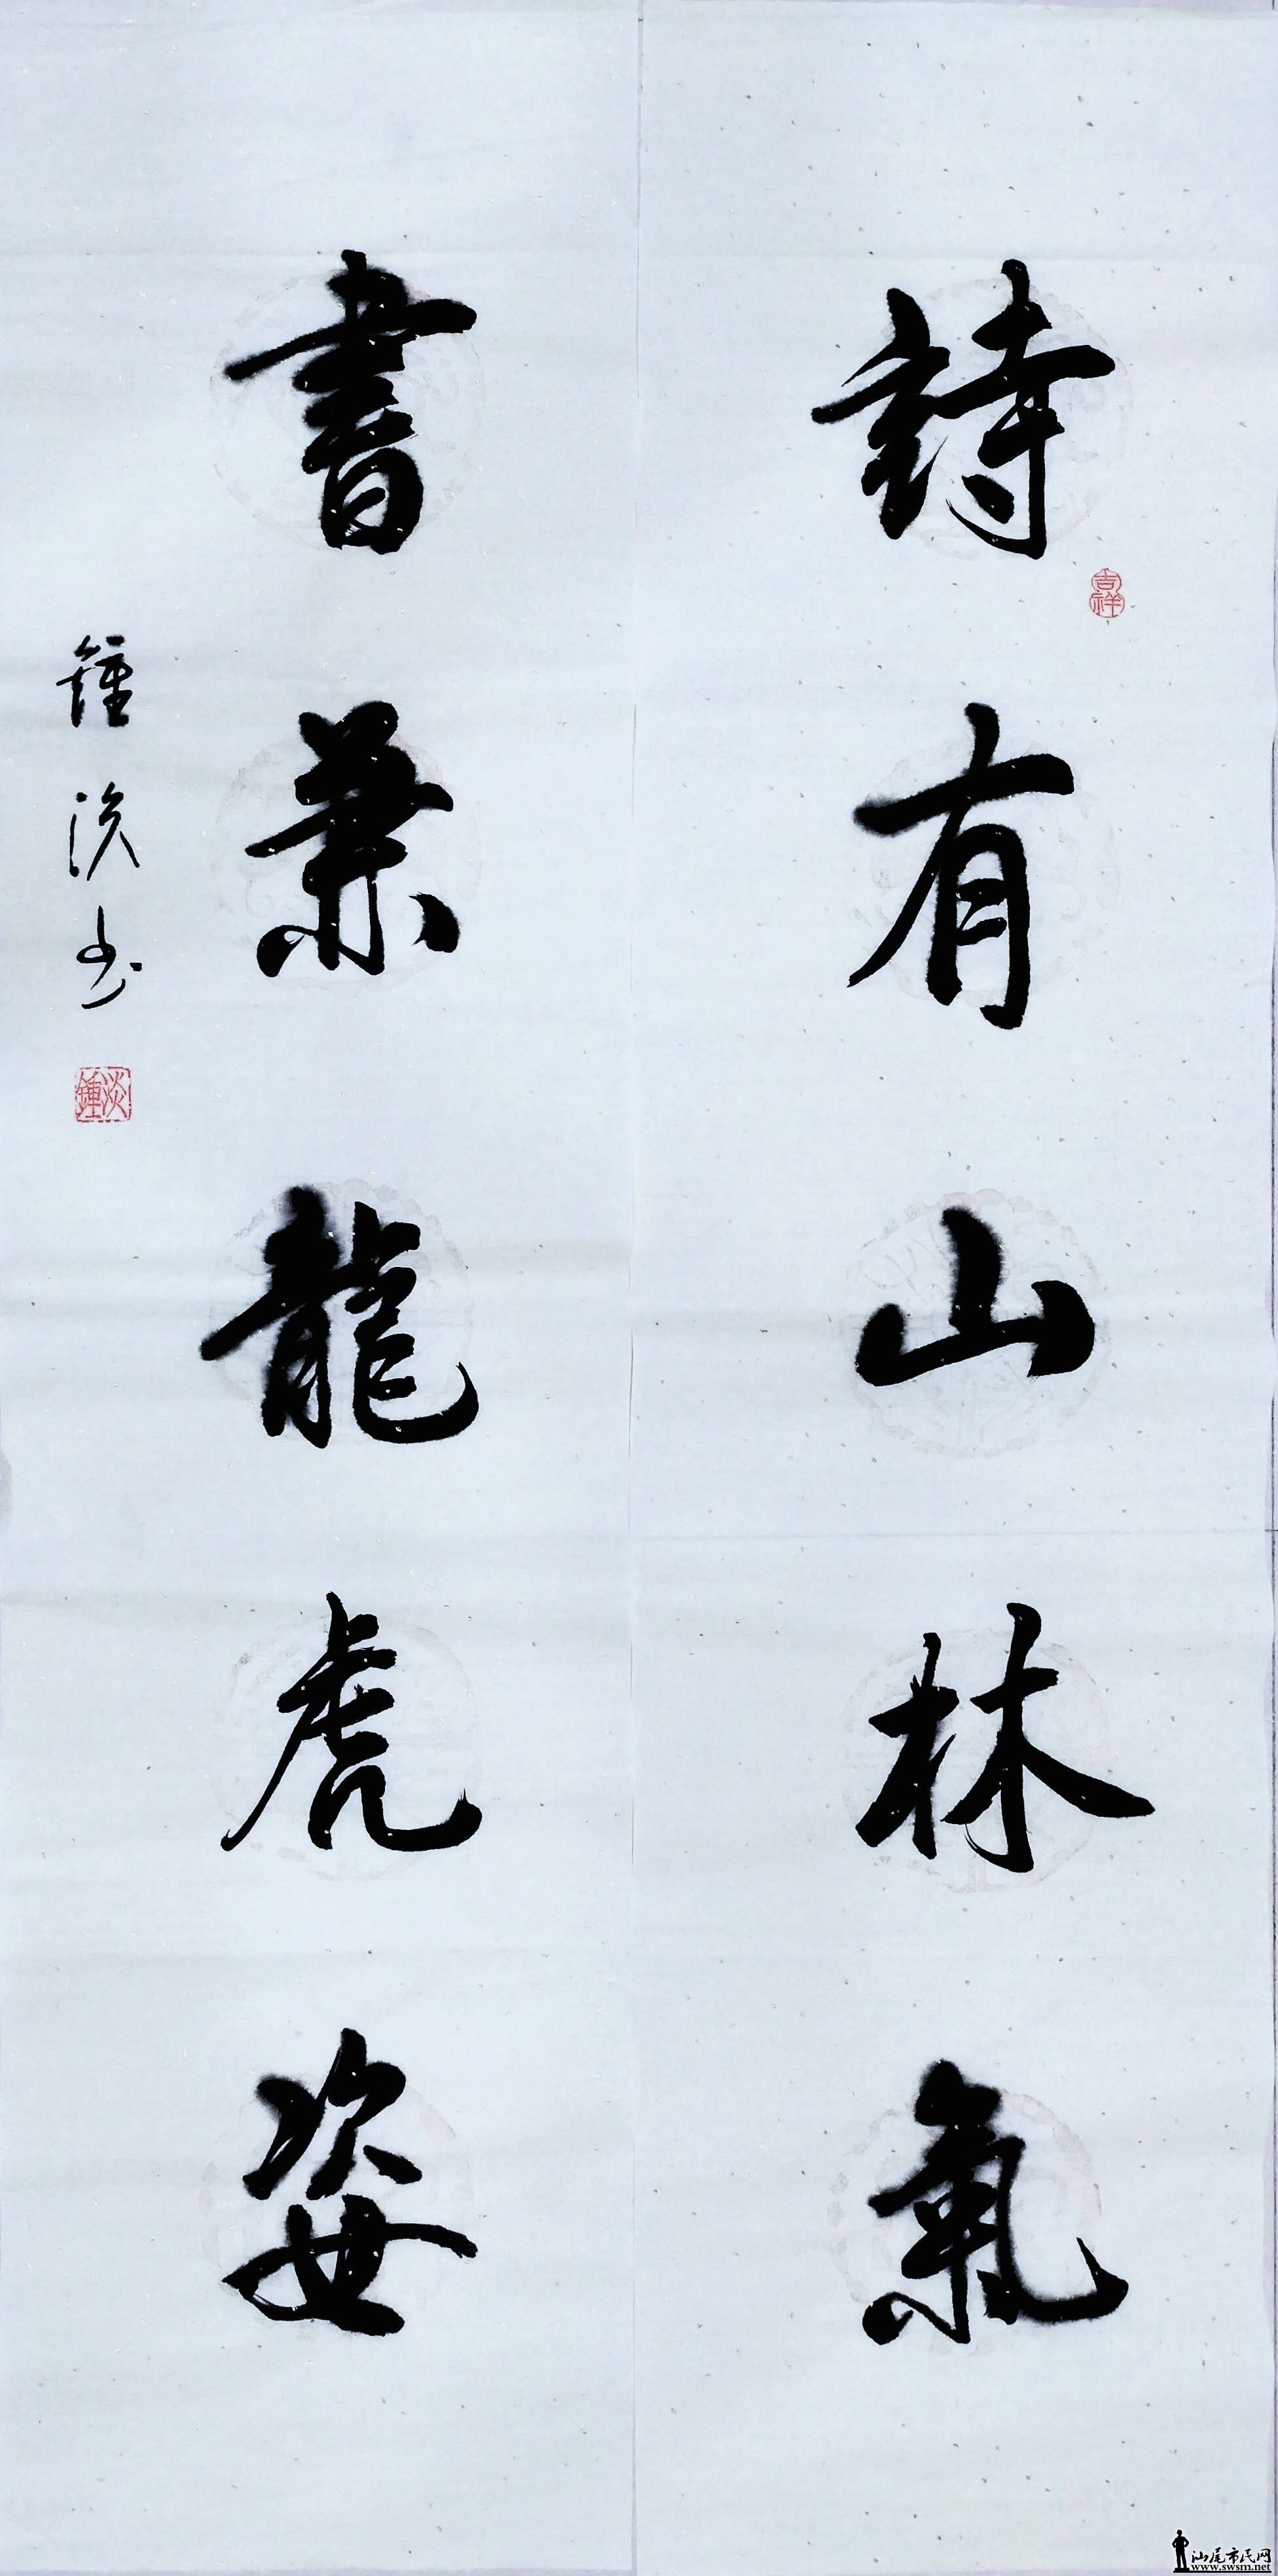 詩有山林氣
吉祥
書兼龍虎姿
鍾淡书
淡鍾
汕尾市民网
www.swsm.net